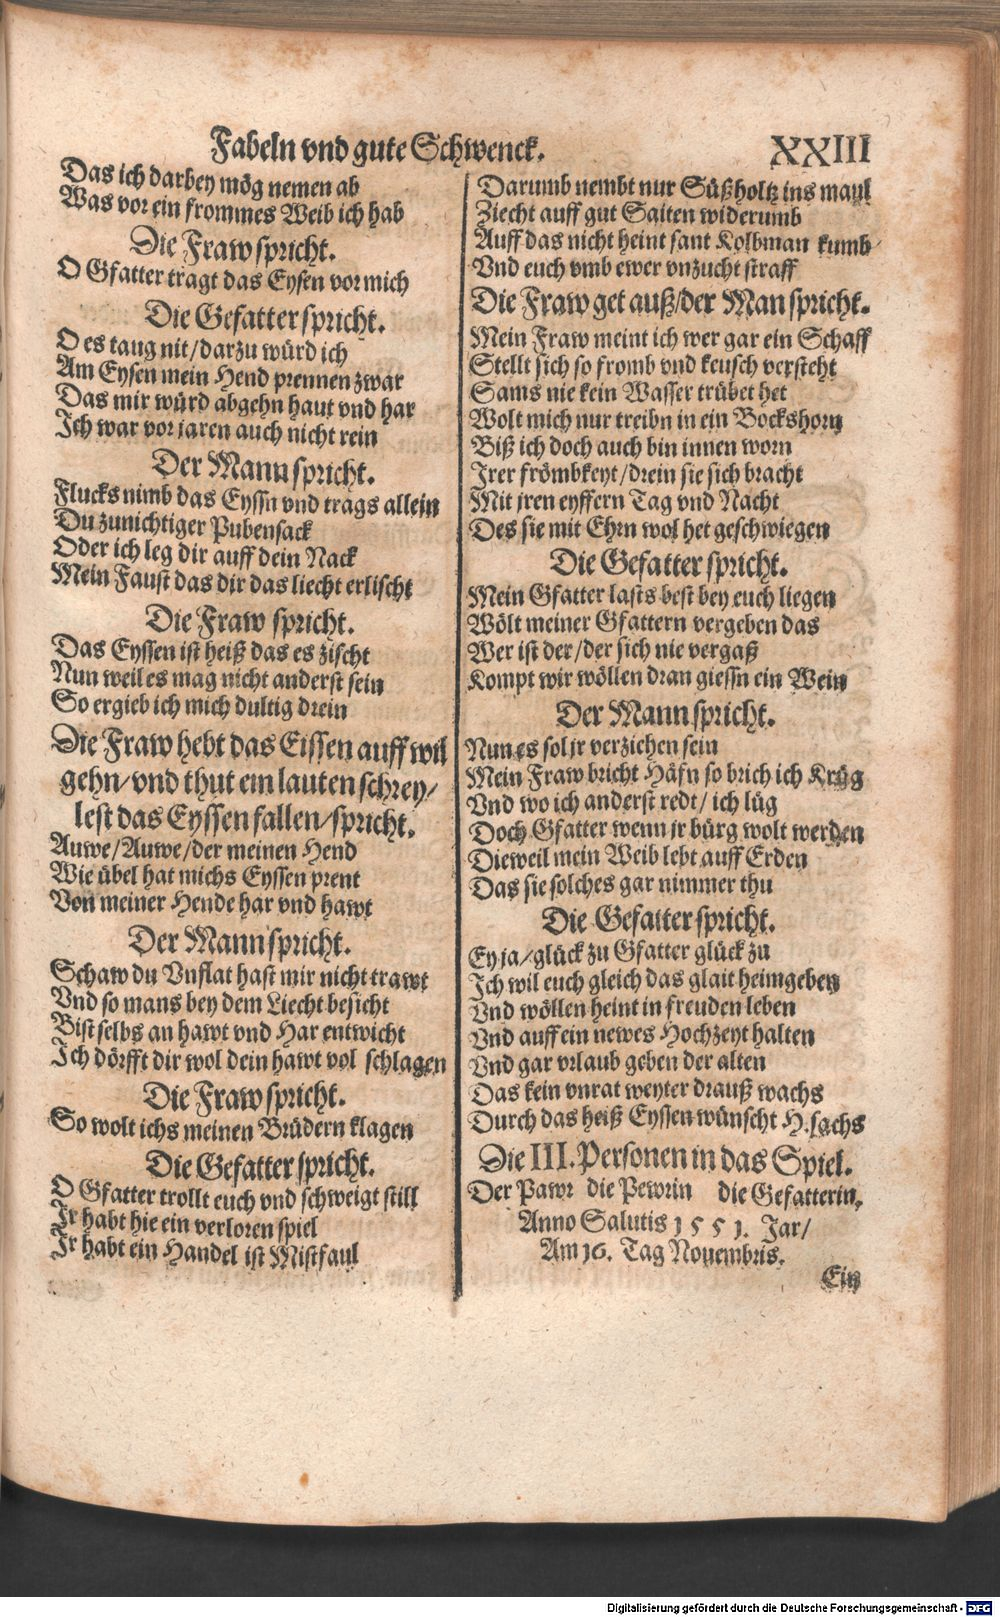 Fabeln vnd gute Schwenck. XXIII
Das ich darbey mög nemen ab
Was vor ein frommes Weib ich hab
Die Fraw spricht.
O Gfatter tragt das Eysen vor mich
Die Gefatter spricht.
O es taug nit/darzu würd ich
Am Eysen mein Hend prennen zwar
Das mir würd abgehn haut vnd har
Ich war vor jaren auch nicht rein
Der Mann spricht.
Flucks nimb das Eyssn vnd trags allein
Du zunichtiger Pubensack
Oder ich leg dir auff dein Nack
Mein Faust das dir das liecht erlischt
Die Fraw spricht.
Das Eyssen ist heiß das es zischt
Nun weil es mag nicht anderst sein
So ergieb ich mich dultig drein
Die Fraw hebt das Eissen auff wil
gehn/vnd thut ein lauten schrey/
lest das Eyssen fallen/spricht.
Auwe/Auwe/der meinen Hend
Wie übel hat michs Eyssen prent
Von meiner Hende har vnd hawt
Der Mann spricht.
Schaw du Vnflat hast mir nicht trawt
Vnd so mans bey dem Liecht besicht
Bist selbs an hawt vnd Har entwicht
Ich dörfft dir wol dein hawt vol schlagen
Die Fraw spricht.
So wolt ichs meinen Brüdern klagen
Die Gefatter spricht.
O Gfatter trollt euch vnd schweigt still
Jr habt hie ein verloren spiel
Jr habt ein Handel ist Mistfaul
Darumb nembt nur Süßholtz ins maul
Ziecht auff gut Saiten widerumb
Auff das nicht heint sant Kolbman kumb
Vnd euch vmb ewer vnzucht straff
Die Fraw get auß/der Man spricht.
Mein Fraw meint ich wer gar ein Schaff
Stellt sich so fromb vnd keusch versteht
Sams nie kein Wasser trübet het
Wolt mich nur treibn in ein Bockshorn
Biß ich doch auch bin innen worn
Jrer frömbkeyt/drein sie sich bracht
Mit jren eyffern Tag vnd Nacht
Des sie mit Ehrn wol het geschwiegen
Die Gefatter spricht.
Mein Gfatter lasts best bey euch liegen
Wölt meiner Gfattern vergeben das
Wer ist der/der sich nie vergaß
Kompt wir wöllen dran giessn ein Wein
Der Mann spricht.
Nun es sol jr verziehen sein
Mein Fraw bricht Häfn so brich ich Krüg
Vnd wo ich anderst redt/ ich lüg
Doch Gfatter wenn jr bürg wolt werden
Dieweil mein Weib lebt auff Erden
Das sie solches gar nimmer thu
Die Gefatter spricht.
Ey ja/glück zu Gfatter glück zu
Ich wil euch gleich das glait heimgeben
Vnd wöllen heint in freuden leben
Vnd auff ein newes Hochzeyt halten
Vnd gar vrlaub geben der alten
Das kein vnrat weyter drauß wachs
Durch das heiß Eyssen wünscht H. sachs
Die III. Personen in das Spiel.
Der Pawr die Pewrin die Gefatterin,
Anno Salutis 1551. Jar/
Am 16. Tag Nouembris.
Ein
Digitalisierung gefördert durch die Deutsche Forschungsgemeinschaft - DFG